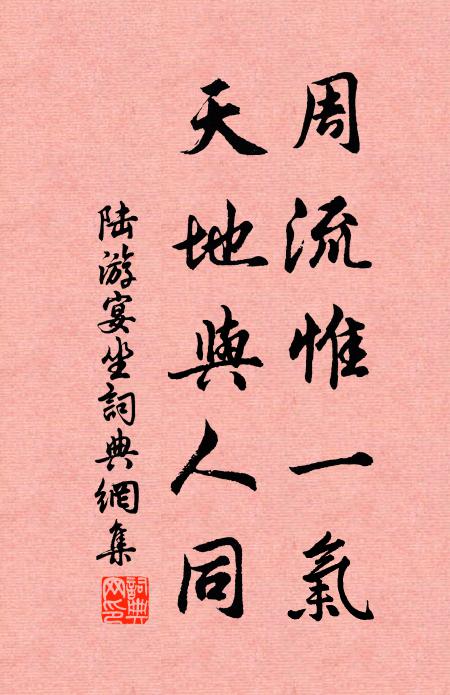 周流惟一氣
天地與人同
陆游宴坐詞典網集
詞典网印